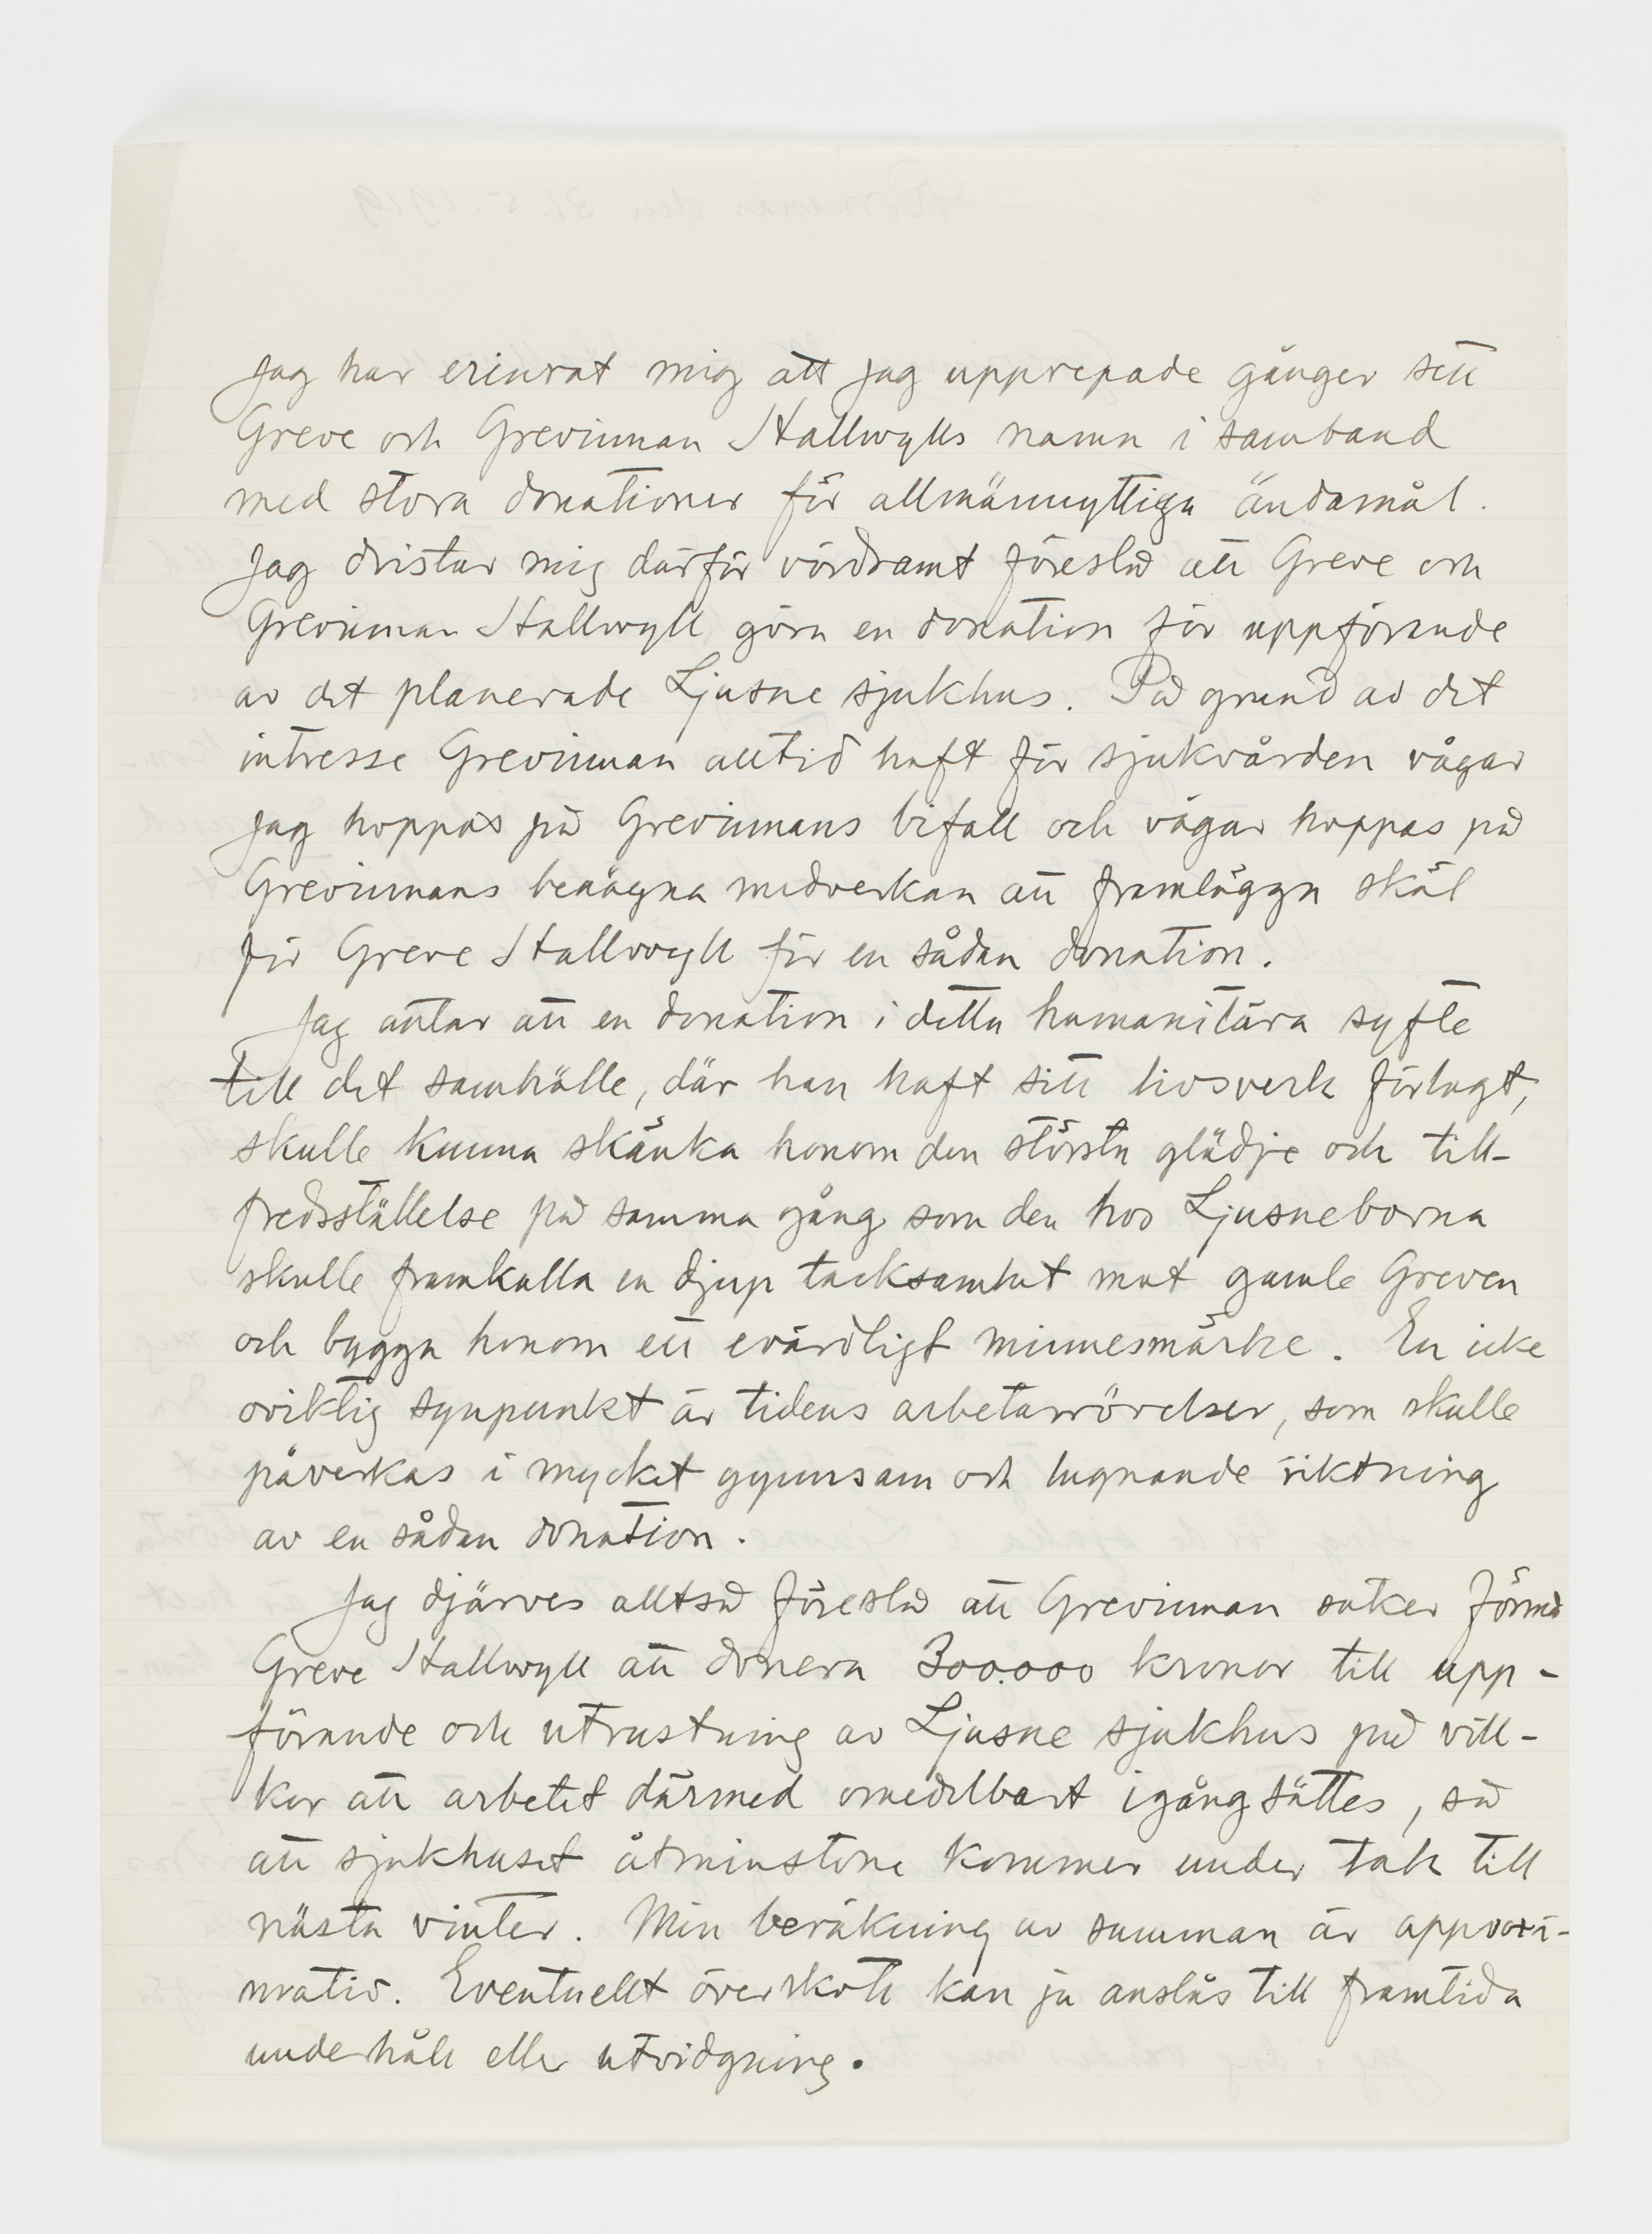 Jag har erinrat mig att jag upprepade gånger sett
Greve och Grevinnan Hallwylls namn i samband
med stora donationer för allmännyttiga ändamål.
Jag dristar mig därför vördsamt föreslå att Greve och
Grevinnan Hallwyll göra en donation för uppförande
av det planerade Ljusne sjukhus. På grund av det
intresse Grevinnan alltid haft för sjukvården vågar
jag hoppas på Grevinnans bifall och vågar hoppas på
Grevinnans benägna medverkan att framlägga skäl
för Greve Hallwyll för en sådan donation.
Jag antar att en donation i detta humanitära syfte
till det samhälle, där han haft sitt livsverk förlagt,
skulle kunna skänka honom den största glädje och till-
fredsställelse på samma gång som den hos Ljusneborna
skulle framkalla en djup tacksamhet mot gamle Greven
och bygga honom ett evärdligt minnesmärke. En icke
oviktig synpunkt är tidens arbetarrörelser, som skulle
påverkas i mycket gynnsam och lugnande riktning
av en sådan donation.
Jag djärves alltså föreslå att Grevinnan söker förmå
Greve Hallwyll att donera 300.000 kronor till upp-
förande och utrustning av Ljusne sjukhus på vill-
kor att arbetet därmed omedelbart igångsättes, så
att sjukhuset åtminstone kommer under tak till
nästa vinter. Min beräkning av summan är approxi-
mativ. Eventuellt överskott kan ju anslås till framtida
underhåll eller utvidgning.